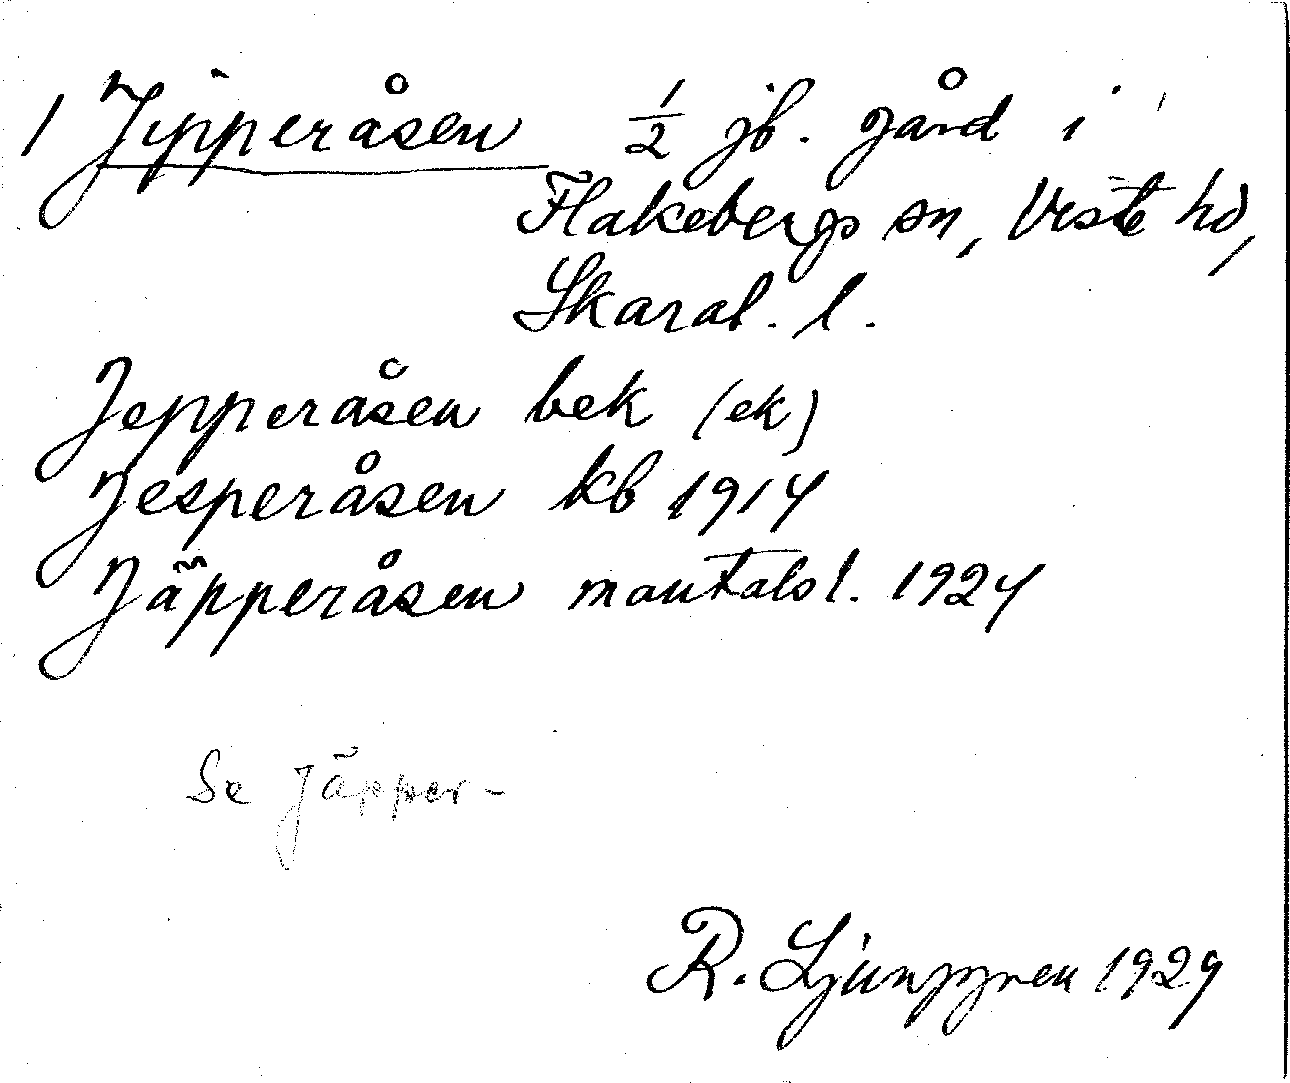 1 Jipperåsen ½ jb. gård i
Flakebergs sn, Viste hd,
Skarab. l.
Jepperåsen bek (ek)
Jesperåsen kb 1914
Jäpperåsen mantalsl. 1924
Se Jäpper-
R. Ljunggren 1929